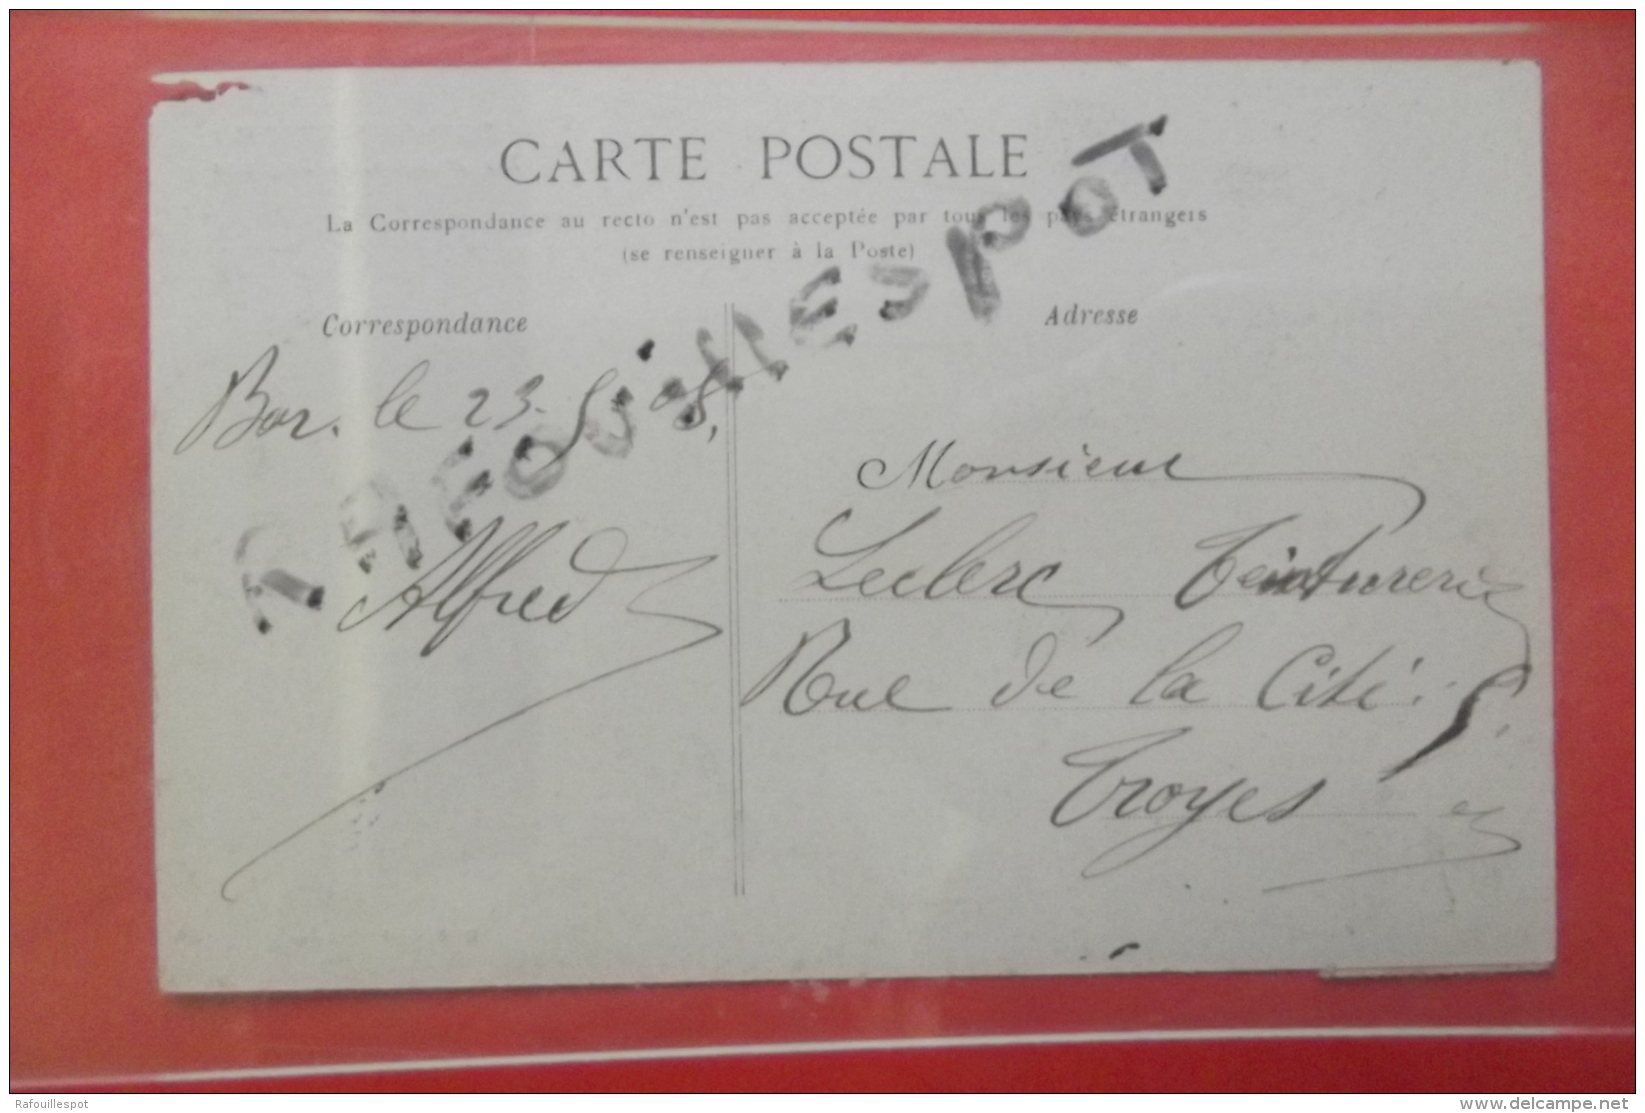 CARTE POSTALE
La Correspondance au recto n'est pas acceptée par tous les pays étrangers
(se renseigner à la Poste)
Correspondance
Adresse
RAFOUILLESPOT
Bar. le 23. 5. 8,
Alfred
Monsieur
Leclerc Teinturerie
Rue de la Cité.
Troyes
Rafouillespot
www.delcampe.net